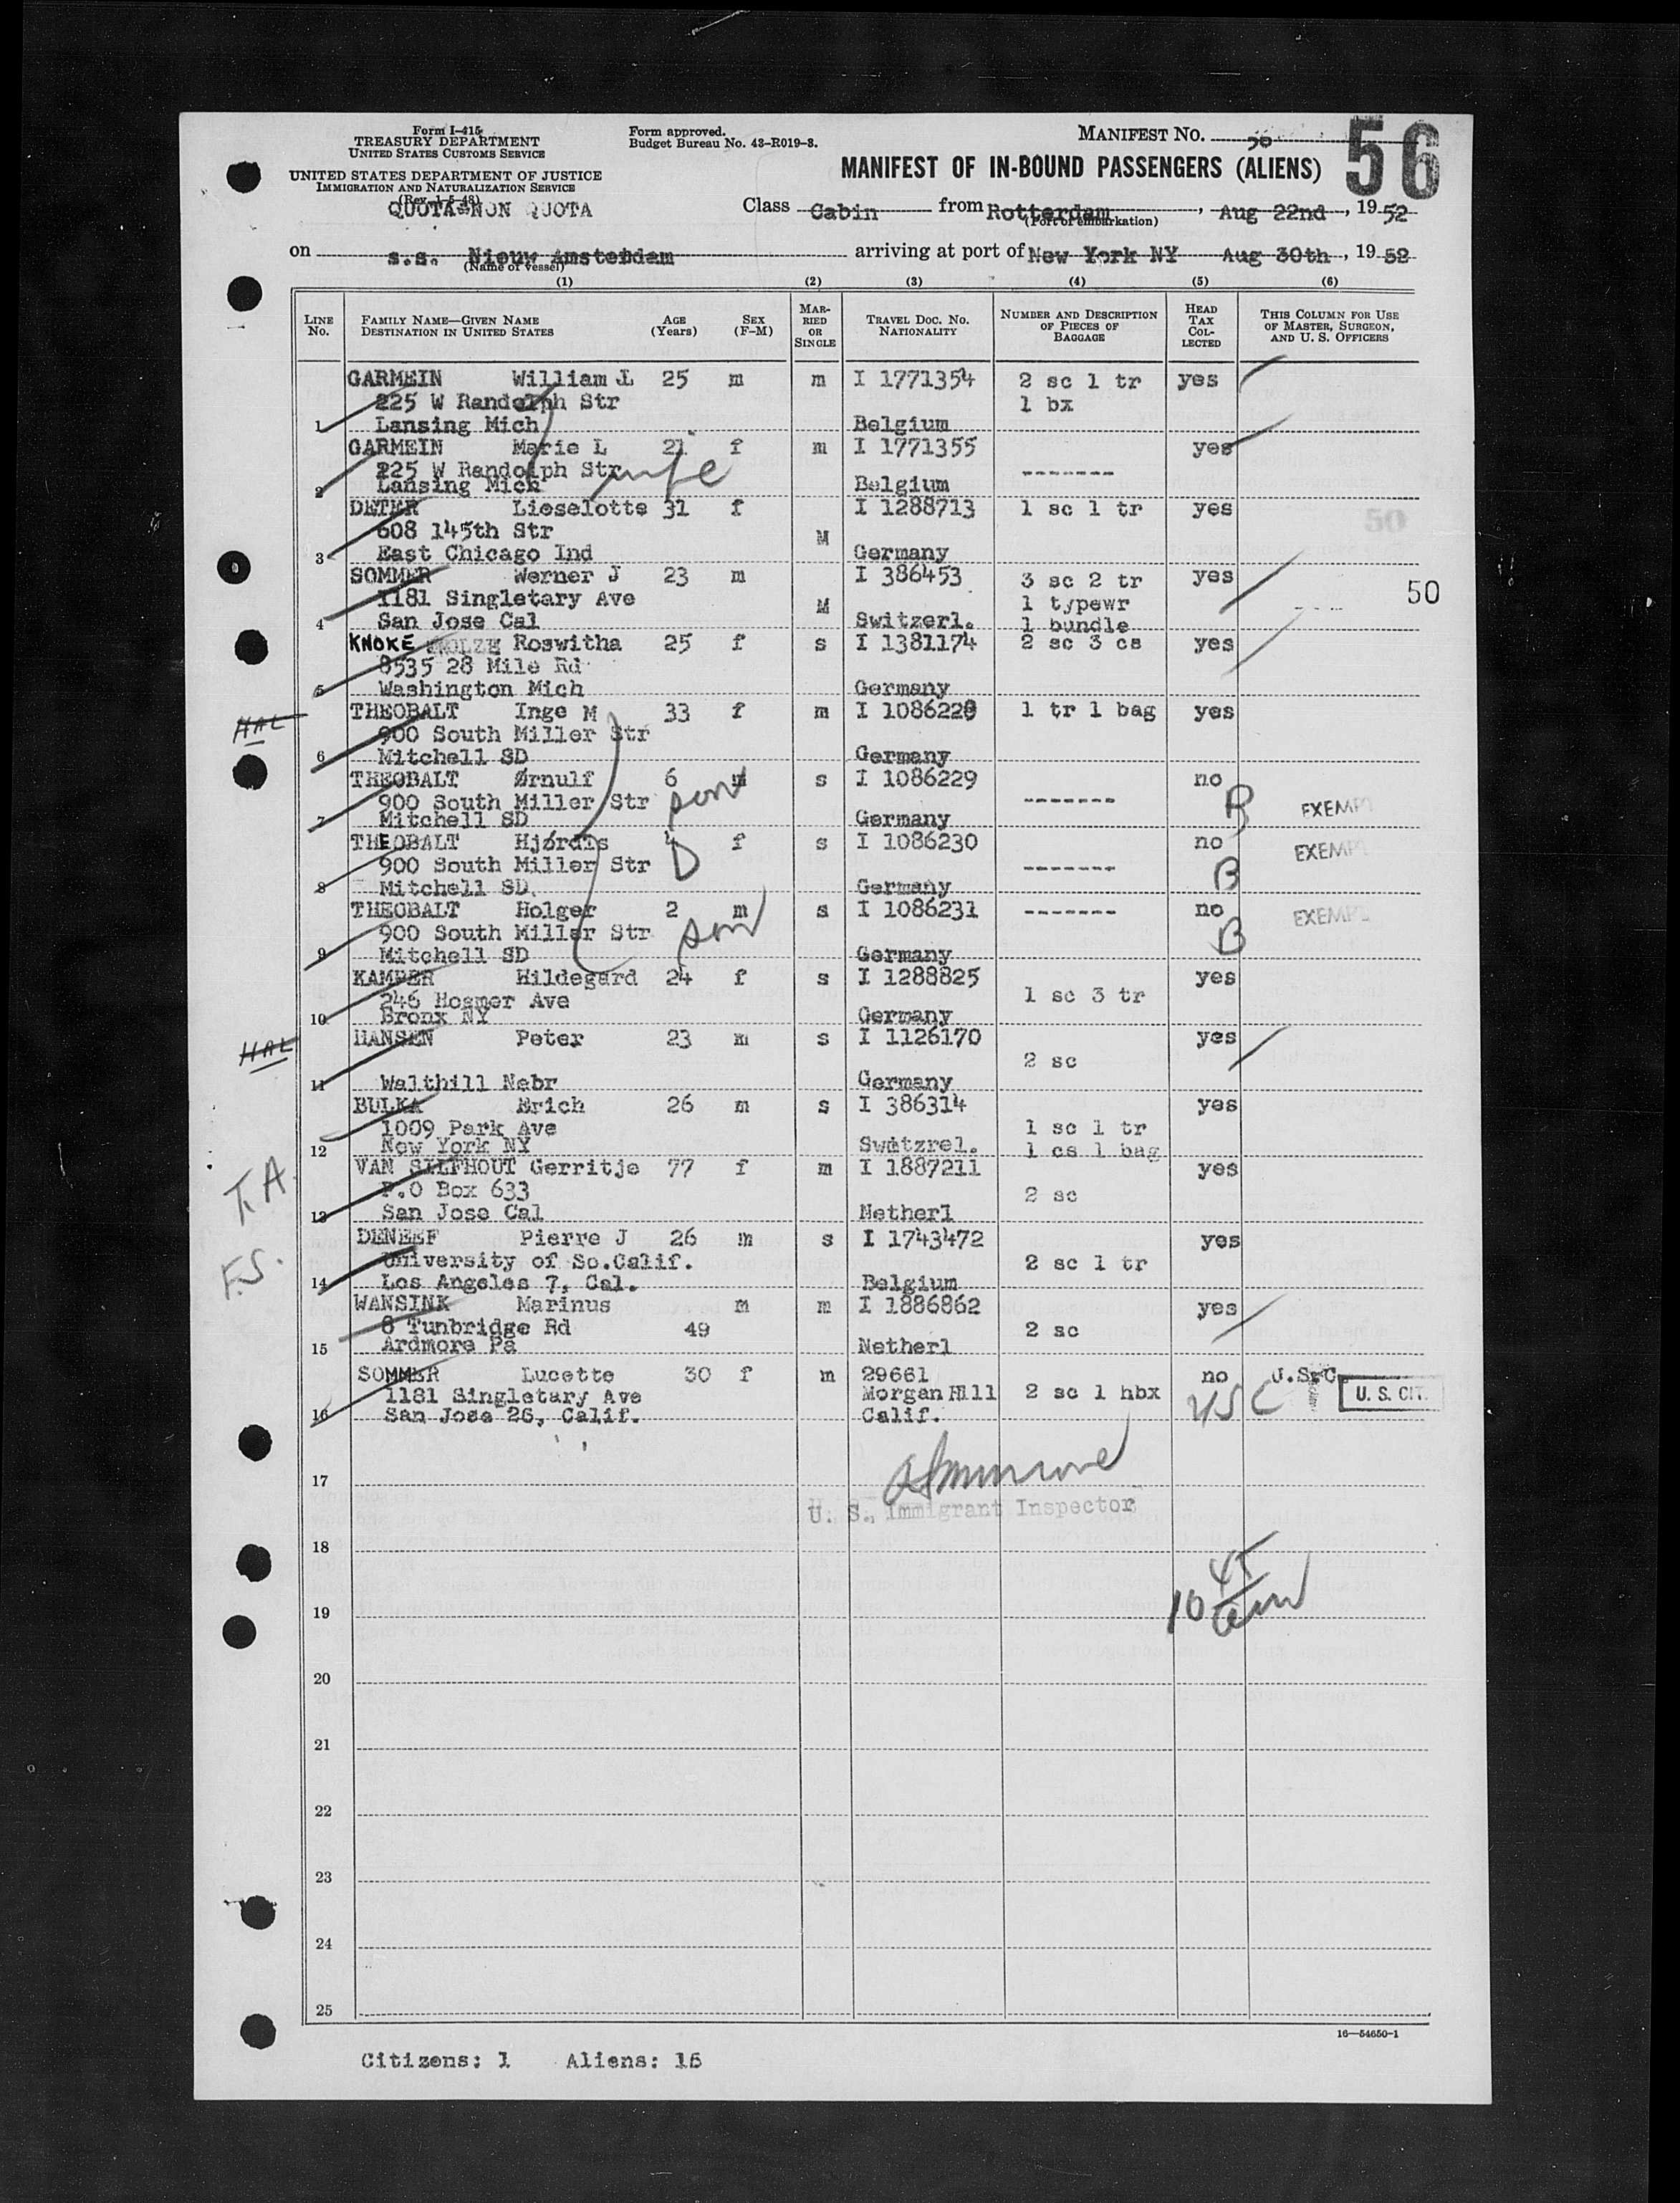 Form I-415
TREASURY DEPARTMENT
UNITED STATES CUSTOMS SERVICE
UNITED STATES DEPARTMENT OF JUSTICE
IMMIGRATION AND NATURALIZATION SERVICE
(Rev. 1-5-48)
QUOTA=NON QUOTA
Form approved.
Budget Bureau No. 43-R019-3.
MANIFEST NO. 56
MANIFEST OF IN-BOUND PASSENGERS (ALIENS)
Class Cabin from Rotterdam, Aug 22nd, 1952
(Port of embarkation)
on s.s. Nieuw Amsterdam arriving at port of New York NY Aug 30th, 1952
(Name of vessel)
(1) (2) (3) (4) (5) (6)
LINE No. FAMILY NAME—GIVEN NAME DESTINATION IN UNITED STATES AGE (Years) SEX (F-M) MARRIED OR SINGLE TRAVEL DOC. NO. NATIONALITY NUMBER AND DESCRIPTION OF PIECES OF BAGGAGE HEAD TAX COLLECTED THIS COLUMN FOR USE OF MASTER, SURGEON, AND U. S. OFFICERS
GARMEIN William J. 25 m m I 1771354 2 sc 1 tr yes
225 W Randolph Str 1 bx
1 Lansing Mich Belgium
GARMEIN Marie L 21 f m I 1771355 yes
225 W Randolph Str wife -------
2 Lansing Mich Belgium
DETER Lieselotte 31 f I 1288713 1 sc 1 tr yes
608 145th Str M 50
3 East Chicago Ind Germany
SOMMER Werner J 23 m I 386453 3 sc 2 tr yes
1181 Singletary Ave M 1 typewr 50
4 San Jose Cal Switzerl. 1 bundle
KNOKE Roswitha 25 f s I 1381174 2 sc 3 cs yes
8535 28 Mile Rd
5 Washington Mich Germany
HAL THEOBALT Inge M 33 f m I 1086228 1 tr 1 bag yes
900 South Miller Str
6 Mitchell SD Germany
THEOBALT Ørnulf 6 m s I 1086229 no
900 South Miller Str son ------- B EXEMPT
7 Mitchell SD Germany
THEOBALT Hjørdis 4 f s I 1086230 no EXEMPT
900 South Miller Str D ------- B
8 Mitchell SD. Germany
THEOBALT Holger 2 m s I 1086231 ------- no EXEMPT
900 South Miller Str son B
9 Mitchell SD Germany
KAMPER Hildegard 24 f s I 1288825 yes
246 Hosmer Ave 1 sc 3 tr
10 Bronx NY Germany
HAL HANSEN Peter 23 m s I 1126170 yes
2 sc
11 Walthill Nebr Germany
BULKA Erich 26 m s I 386314 yes
1009 Park Ave 1 sc 1 tr
12 New York NY Switzrel. 1 cs 1 bag
T.A. VAN SILFHOUT Gerritje 77 f m I 1887211 yes
P.O Box 633 2 sc
13 San Jose Cal Netherl
F.S. DENEEF Pierre J 26 m s I 1743472 yes
University of So.Calif. 2 sc 1 tr
14 Los Angeles 7, Cal. Belgium
WANSINK Marinus m m I 1886862 yes
8 Tunbridge Rd 49 2 sc
15 Ardmore Pa Netherl
SOMMER Lucette 30 f m 29661 no U.S.C.
1181 Singletary Ave Morgan Hill 2 sc 1 hbx USC U. S. CIT.
16 San Jose 26, Calif. Calif.
17
U. S. Immigrant Inspector
18
19
20
21
22
23
24
25
16—54650-1
Citizens: 1 Aliens: 15